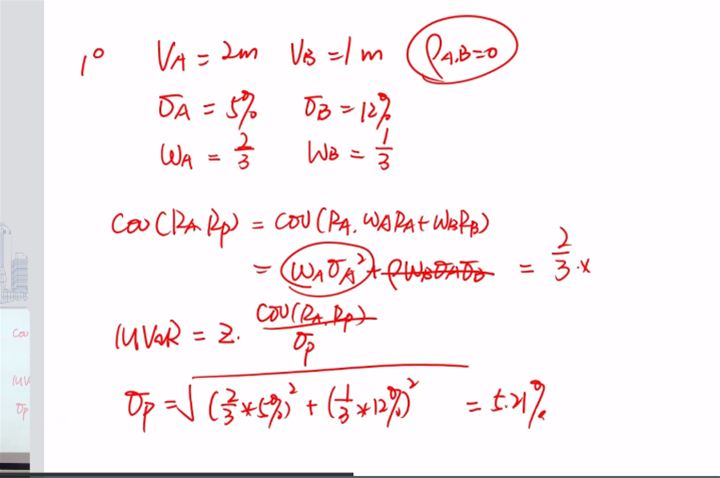 1° V_A = 2m V_B = 1m ρ_{A,B}=0
σ_A = 5% σ_B = 12%
W_A = 2/3 W_B = 1/3
COV(R_A, R_p) = COV(R_A, W_A R_A + W_B R_B)
= W_A σ_A² + ρ W_B σ_A σ_B = 2/3 ·x
MVaR = Z. COV(R_A, R_p)/σ_p
σ_p = √((2/3 * 5%)² + (1/3 * 12%)²) = 5.21%
Cov
MV
σ_p